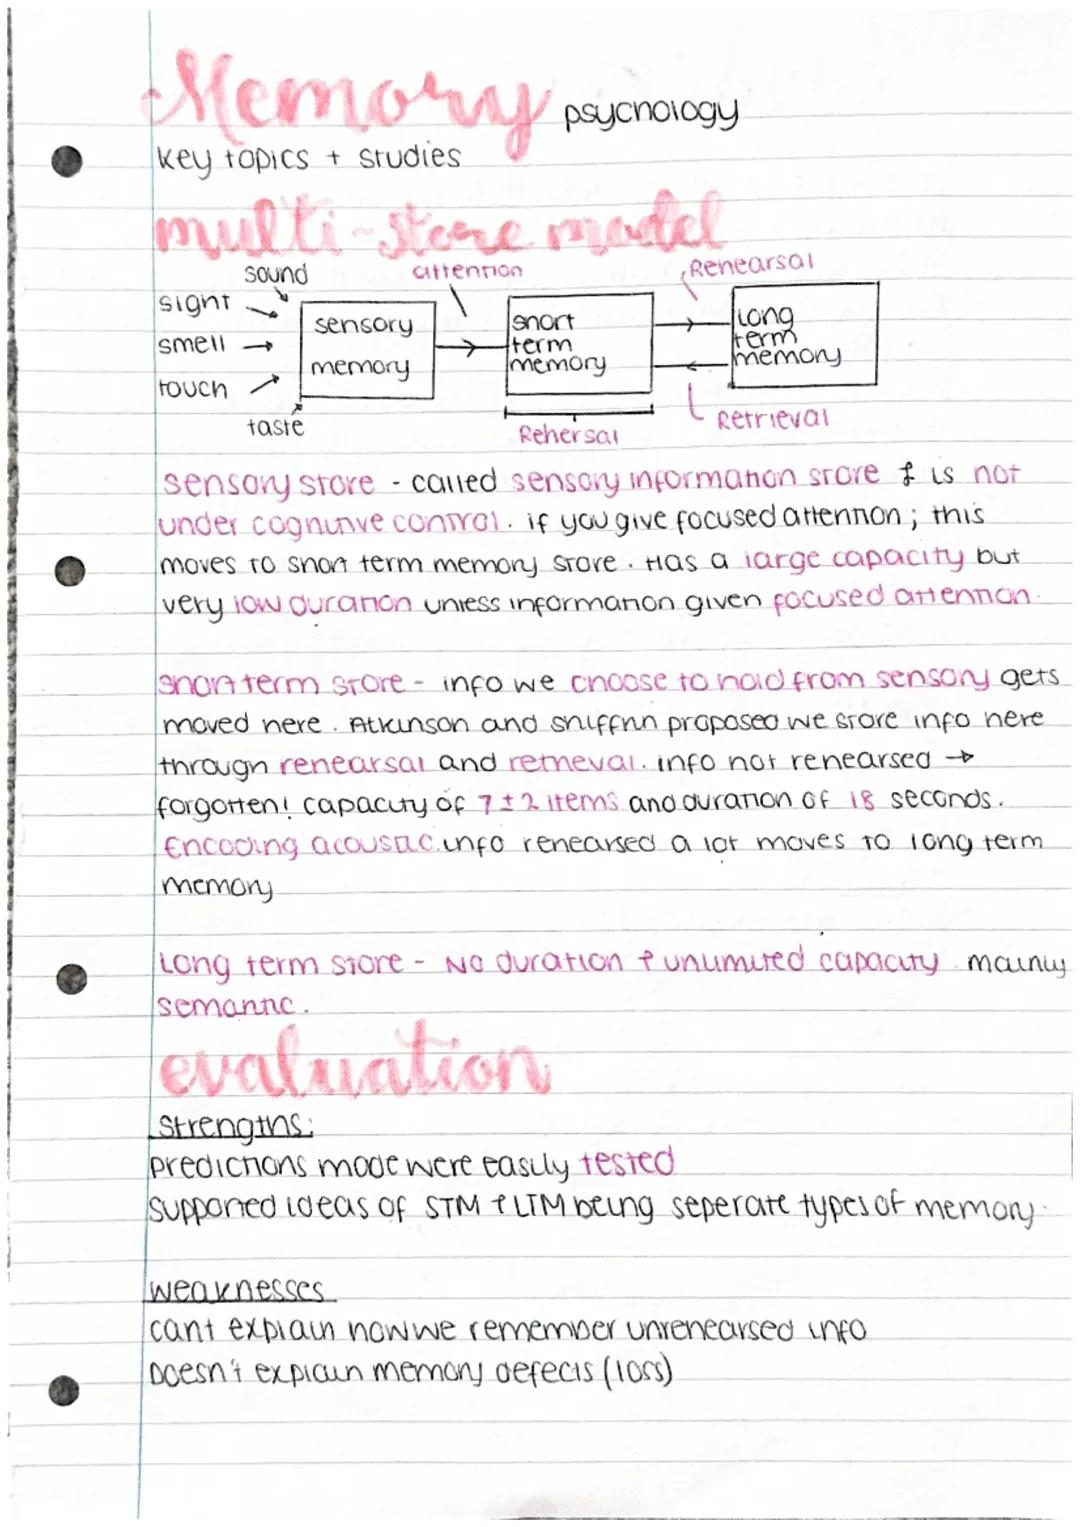 Memory psychology
key topics + studies
multi-store model
sound attention Rehearsal
sight
smell
touch
taste
sensory
memory
short
term
memory
Long
term
memory
Rehersal
Retrieval
sensory store - called sensory information store & is not
under cognitive control. if you give focused attention; this
moves to short term memory store. Has a large capacity but
very low duration unless information given focused attention.
short term store - info we choose to hold from sensory gets
moved here. Atkinson and shiffrin proposed we store info here
through rehearsal and retrieval. info not rehearsed →
forgotten! capacity of 7±2 items and duration of 18 seconds.
Encoding acoustic. info rehearsed a lot moves to long term
memory
Long term store - No duration & unlimited capacity. mainly
semantic.
evaluation
strengths:
predictions made were easily tested
supported ideas of STM & LTM being seperate types of memory.
weaknesses
cant explain how we remember unrehearsed info
Doesn't explain memory defects (loss)